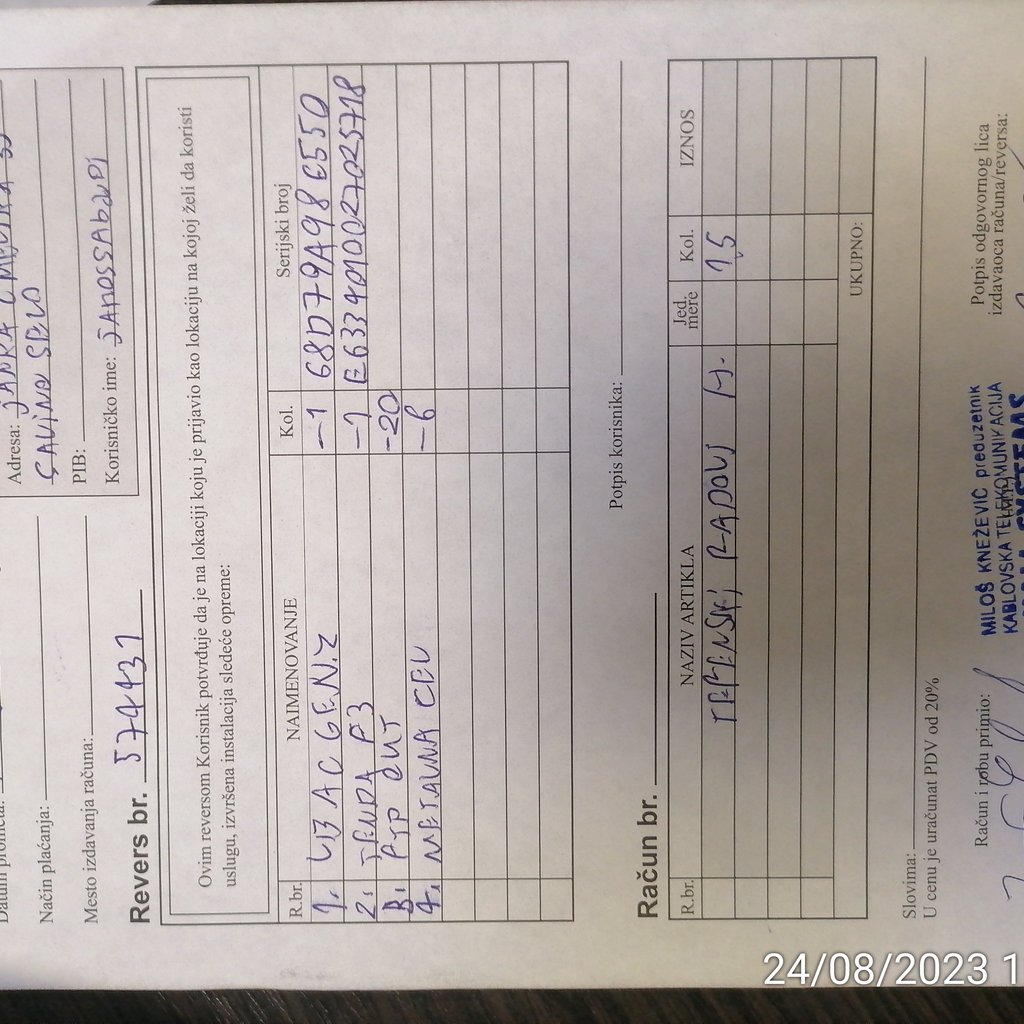 Adresa: JANKA ČMELIKA
SAVINO SELO
PIB:
Korisničko ime: JANOSSABADPI
Način plaćanja:
Mesto izdavanja računa:
Revers br. 574431
Ovim reversom Korisnik potvrđuje da je na lokaciji koju je prijavio kao lokaciju na kojoj želi da koristi
uslugu, izvršena instalacija sledeće opreme:
R.br. NAIMENOVANJE Kol. Serijski broj
1. LIB AC GEN.2 -1 68D79A98E550
2. TENDA F3 -1 E6334010027025718
3. FTP OUT -20
4. METALNA CEV -6
Potpis korisnika:
Račun br.
R.br. NAZIV ARTIKLA Jed. mere Kol. IZNOS
TERENSKI RADOVI H. 1,5
UKUPNO:
Slovima:
U cenu je uračunat PDV od 20%
Račun i robu primio:
Potpis odgovornog lica
izdavaoca računa/reversa:
MILOŠ KNEŽEVIĆ preduzetnik
KABLOVSKA TELEKOMUNIKACIJA
SYSTEMS
24/08/2023 1